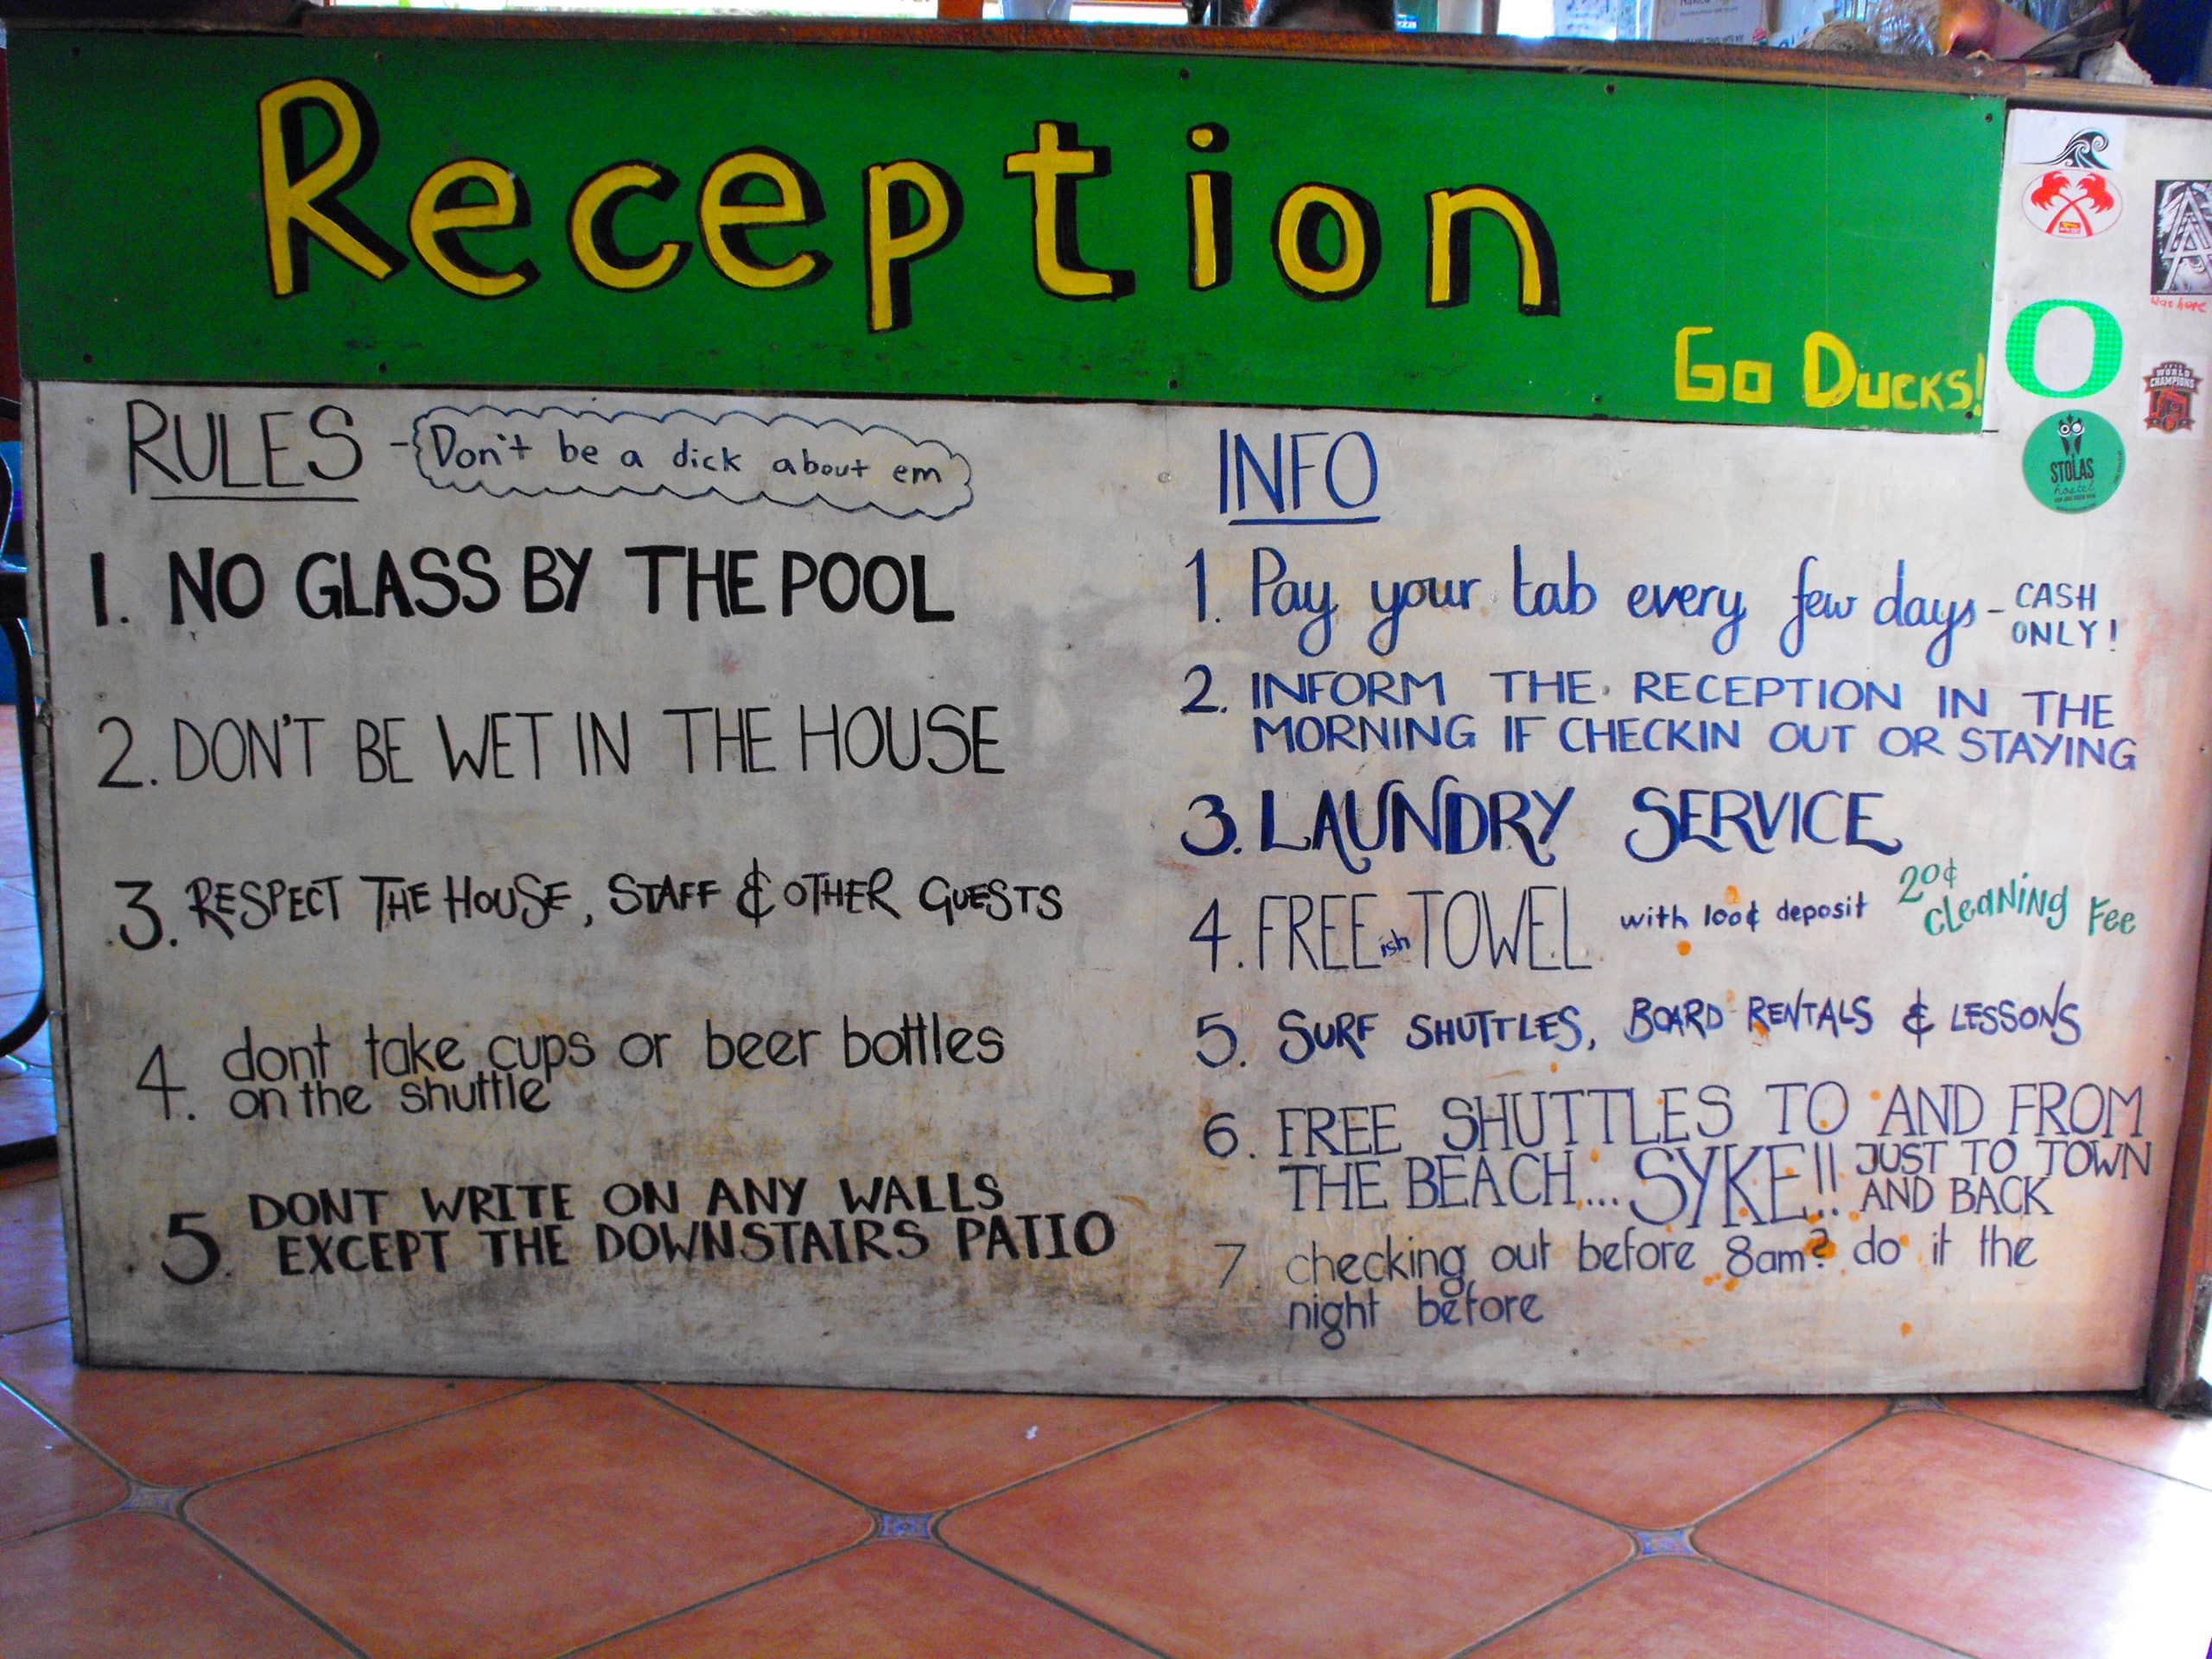 Reception
Go Ducks!
RULES - Don't be a dick about em
1. NO GLASS BY THE POOL
2. DON'T BE WET IN THE HOUSE
3. RESPECT THE HOUSE, STAFF & OTHER GUESTS
4. dont take cups or beer bottles
on the shuttle
5. DONT WRITE ON ANY WALLS
EXCEPT THE DOWNSTAIRS PATIO
INFO
1. Pay your tab every few days - CASH
ONLY!
2. INFORM THE RECEPTION IN THE
MORNING IF CHECKIN OUT OR STAYING
3. LAUNDRY SERVICE
4. FREEish TOWEL with 100¢ deposit 20¢
cleaning Fee
5. SURF SHUTTLES, BOARD RENTALS & LESSONS
6. FREE SHUTTLES TO AND FROM
THE BEACH... SYKE!! JUST TO TOWN
AND BACK
7. checking out before 8am? do it the
night before
O
was here
WORLD
CHAMPIONS
STOLAS
hostel